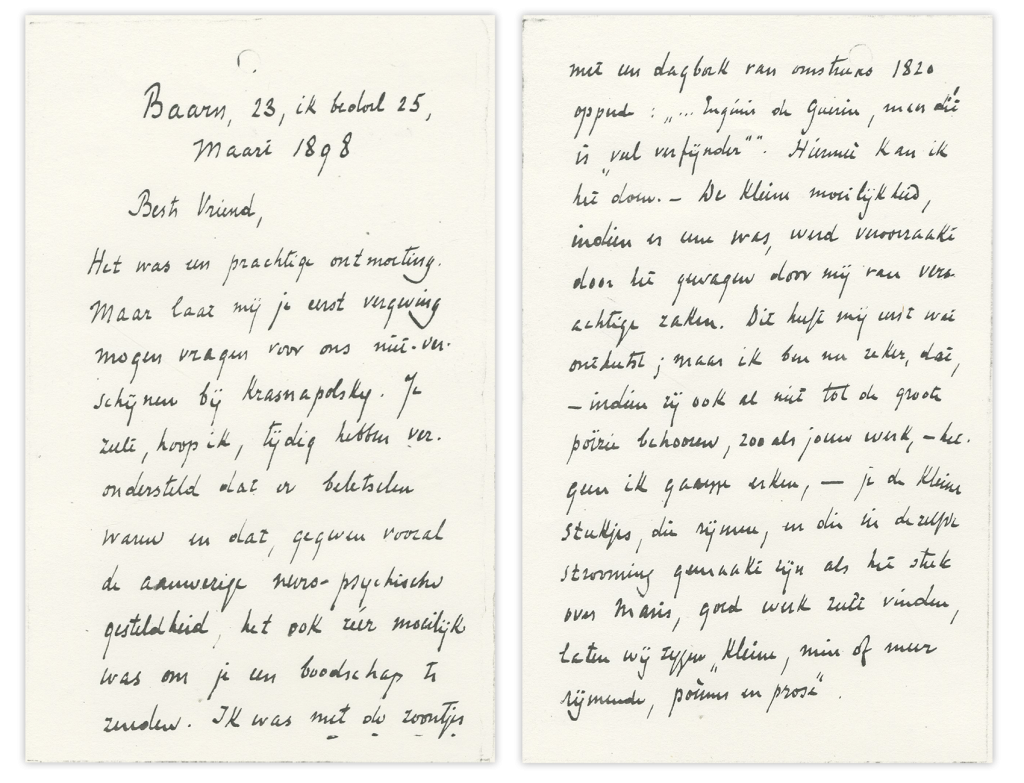 Baarn, 23, ik bedoel 25,
Maart 1898
Beste Vriend,
Het was een prachtige ontmoeting.
Maar laat mij je eerst vergeving
mogen vragen voor ons niet-ver-
schijnen bij Krasnapolsky. Je
zult, hoop ik, tijdig hebben ver-
ondersteld dat er beletselen
waren en dat, gegeven vooral
de aanwezige neuro-psychische
gesteldheid, het ook zéér moeilijk
was om je een boodschap te
zenden. Ik was met de zoontjes
met een dagboek van omstreeks 1820
oppende: „... Eugénie de Guérin, maar dié
is „veel verfijnder"". Hiermee kan ik
het doen. — De kleine moeilijkheid,
indien er eene was, werd veroorzaakt
door het gewagen door mij van vers-
achtige zaken. Dit heeft mij eerst wat
onthutst; maar ik ben nu zeker, dat,
— indien zij ook al niet tot de groote
poëzie behooren, zooals jouw werk, — het-
geen ik gaarne erken, — je de kleine
stukjes, die rijmen, en die in dezelfde
strooming gemaakt zijn als het stuk
over Maris, goed werk zult vinden,
laten wij zeggen „kleine, min of meer
rijmende, poëems en prose".